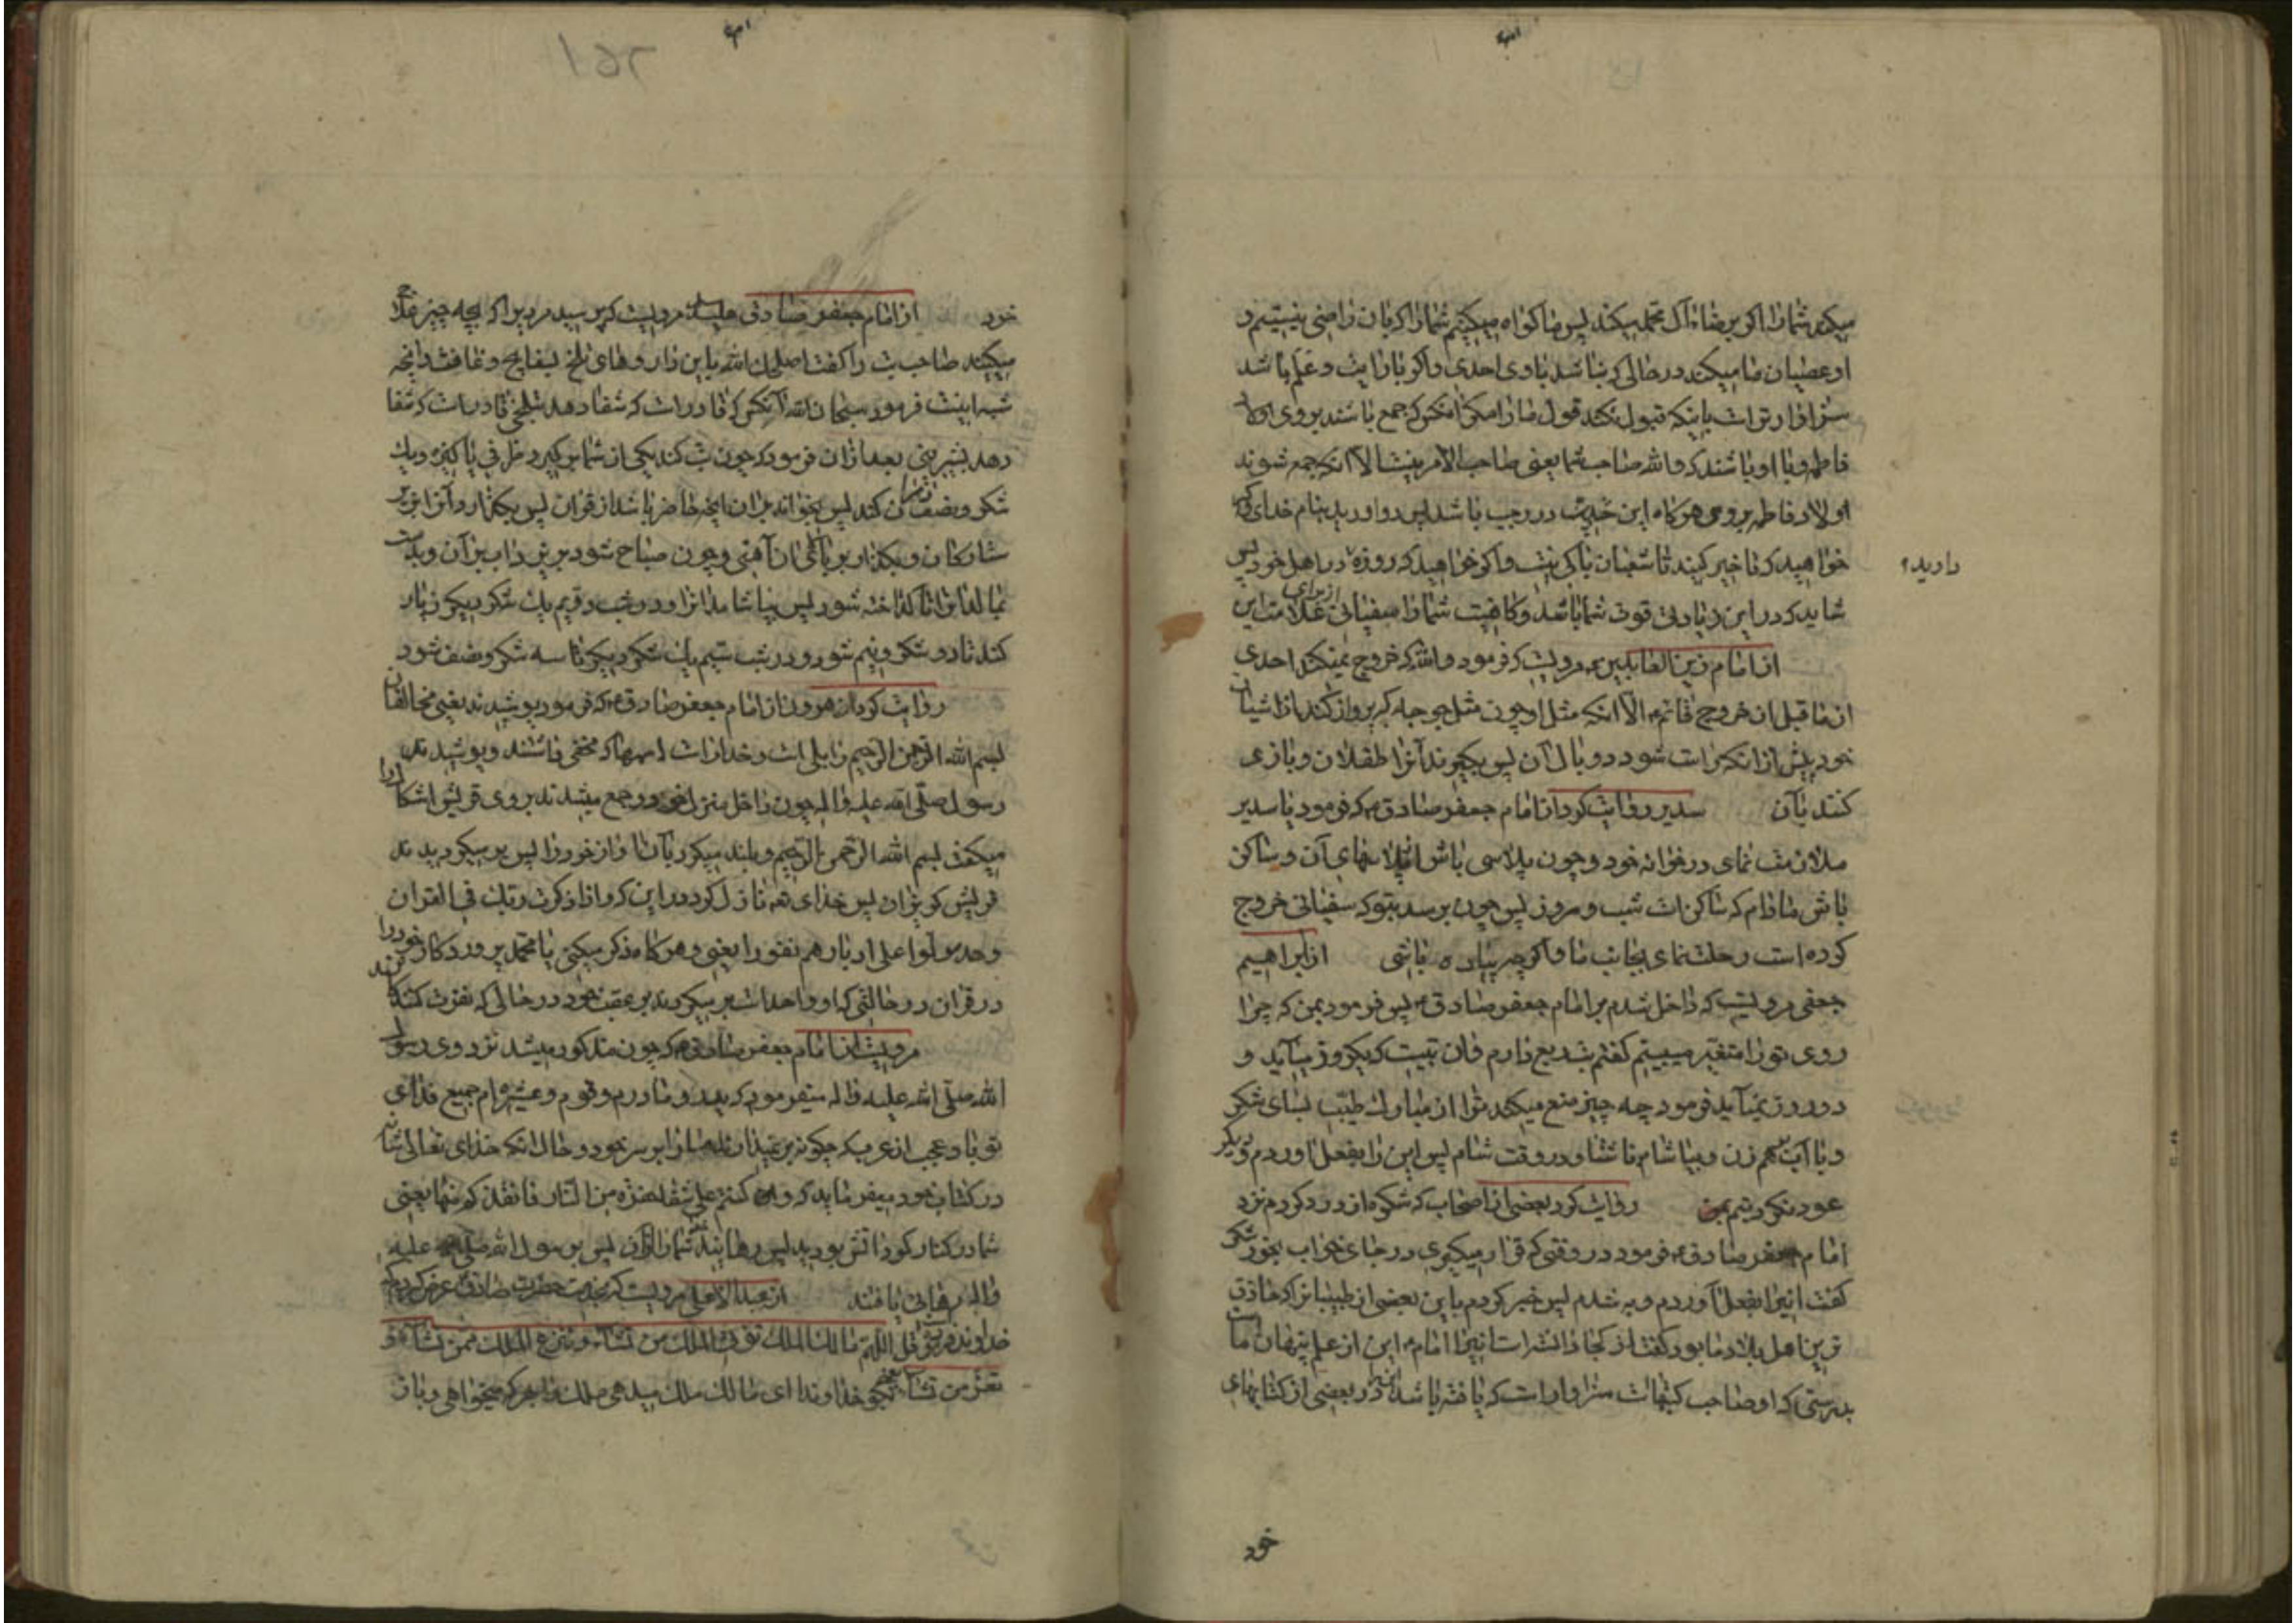 میکند شما را اکر برضاء آل محمد میکند پس ما کواه میکیریم شما را که بان راضی نیستیم و
او عصیان ما میکند در حالی که نباشد با وی احدی و اکر با رایت و علم باشد
سزاوارتر است باینکه قبول نکند قول ما را مکر آنکس که جمع باشند بر وی اولاد
فاطمه و با او باشند که والله صاحب شما یعنی صاحب الامر نیست الا آنکه جمع شوند
اولاد فاطمه بر وی هرکاه این خدیث در رجب باشد پس رو اورید بنام خدای و اکر
خواهید که تاخیر کنید تا شعبان باکی نیست و اکر خواهید که روزه در اهل خود پس
دارید
شاید که در این زیادتی قوت شما باشد و کافیست شما را سفیانی از برای علامت این
از امام زین العابدین ع مرویست که فرمود والله که خروج نمیکند احدی
از ما قبل از خروج قائم ع الا آنکه مثل او چون مثل جوجه که پرواز کند از اشیان
خود پیش از آنکه راست شود دو بال آن پس بکیرند آنرا طفلان و بازی
کنند بآن سدیر روایت کرد از امام جعفر صادق ع که فرمود یا سدیر
ملازمت نمای در خوانه خود و چون پلاسی باش از پلاسهای آن و ساکن
باش مادام که ساکن است شب و روز پس چون برسد بتو که سفیانی خروج
کرده است رحلت نمای بجانب ما و اکر چه پیاده باشی از ابراهیم
جعفی مرویست که داخل شدم بر امام جعفر صادق ع پس فرمود بمن که چرا
روی تو را متغیر میبینم کفتم تب ربع دارم و آن تبیست که یکروز میآید و
دو روز نمیآید فرمود چه چیز منع میکند تو را از مبارک طیب بسای شکر
و با آب بهم زن و بیاشام ناشتا و در وقت شام پس این را بفعل اوردم دیکر
عود نکرد تبم بمن روایت کرد بعضی از اصحاب که شکوه از درد کردم نزد
امام جعفر صادق ع فرمود در وقتی که قرار میکیری در جای خواب بخور شکر
کفت اینرا بفعل آوردم و به شدم پس خبر کردم باین بعضی از طبیبانرا که حاذق
ترین اهل بلاد ما بود کفت از کجا دانست اینرا امام ع این از علم پنهان ماست
بدرستی که او صاحب کتبهاست سزاوار است که یافته باشد در بعضی از کتابهای
خود
خود از امام جعفر صادق علیه السلم مرویست که پرسید مردیرا که بچه چیز علاج
میکنید صاحب تب را کفت اصلحک الله باین داروهای تلخ بسفایج و غافث و آنچه
شبه اینست فرمود سبحان الله آنکس که قادر است که شفا دهد بتلخی قادر است که شفا
دهد بشیرینی بعد ازان فرمود که چون تب کند یکی از شما بکیرد ظرفی پاکیزه و یک
شکر و نصف در آن کند پس بخواند بر ان انچه حاضر باشد از قران پس بکذارد و آنرا در زیر
ستارکان و بکذارد بر بالای ان آهنی و چون صباح شود بریزد آب بر آن و بدست
بمالد آنرا تا کداخته شود پس بیاشامد آنرا و در شب دویم یک شکر دیکر زیاد
کند تا دو شکر و نیم شود و در شب سیم یک شکر دیکر تا سه شکر و نصف شود
روایت کرد از هرون از امام جعفر صادق ع که فرمود پوشیدند یعنی مخالفان
بسم الله الرحمن الرحیم را بلی است و خدا راست اسمها که مخفی داشتند و پوشیدند
رسول صلی الله علیه و اله چون داخل منزل خود و جمع میشدند بر وی قریش اشکارا
میکفت بسم الله الرحمن الرحیم و بلند میکرد بآن آواز خود را پس بر میکردیدند
قریش کریزان پس خدای تعا نازل کرد در این که و اذا ذکرت ربک فی القران
وحده ولوا علی ادبارهم نفورا یعنی و هرکاه ذکر میکنی یا محمد پروردکار خود را
در قران در حالتی که او واحد است بر میکردند بر عقب خود در حالی که نفرت کننده اند
مرویست از امام جعفر صادق ع که چون مذکور میشد نزد وی رسول
الله صلی الله علیه و اله میفرمود که پدر و مادرم و قوم و عشیره ام جمیع فدای
تو باد عجب از عرب که چکونه بر نمیدارند ما را بر سر خود و حال آنکه خدای تعالی شانه
در کتاب خود میفرماید که و کنتم علی شفا حفرة من النار فانقذکم منها یعنی
شما در کنار کود اتش بودید پس رهانید شما را از آن پس برسول الله صلی الله علیه
واله رهائی یافتند از عبد الاعلی مرویست که بخدمت حضرت صادق عرض کردم که
خداوند فرموده قل اللهم مالک الملک تؤتی الملک من تشاء و تنزع الملک ممن تشاء و
تعز من تشاء یعنی بکو خداوندا ای مالک ملک میدهی ملک را بهر که میخواهی و باز